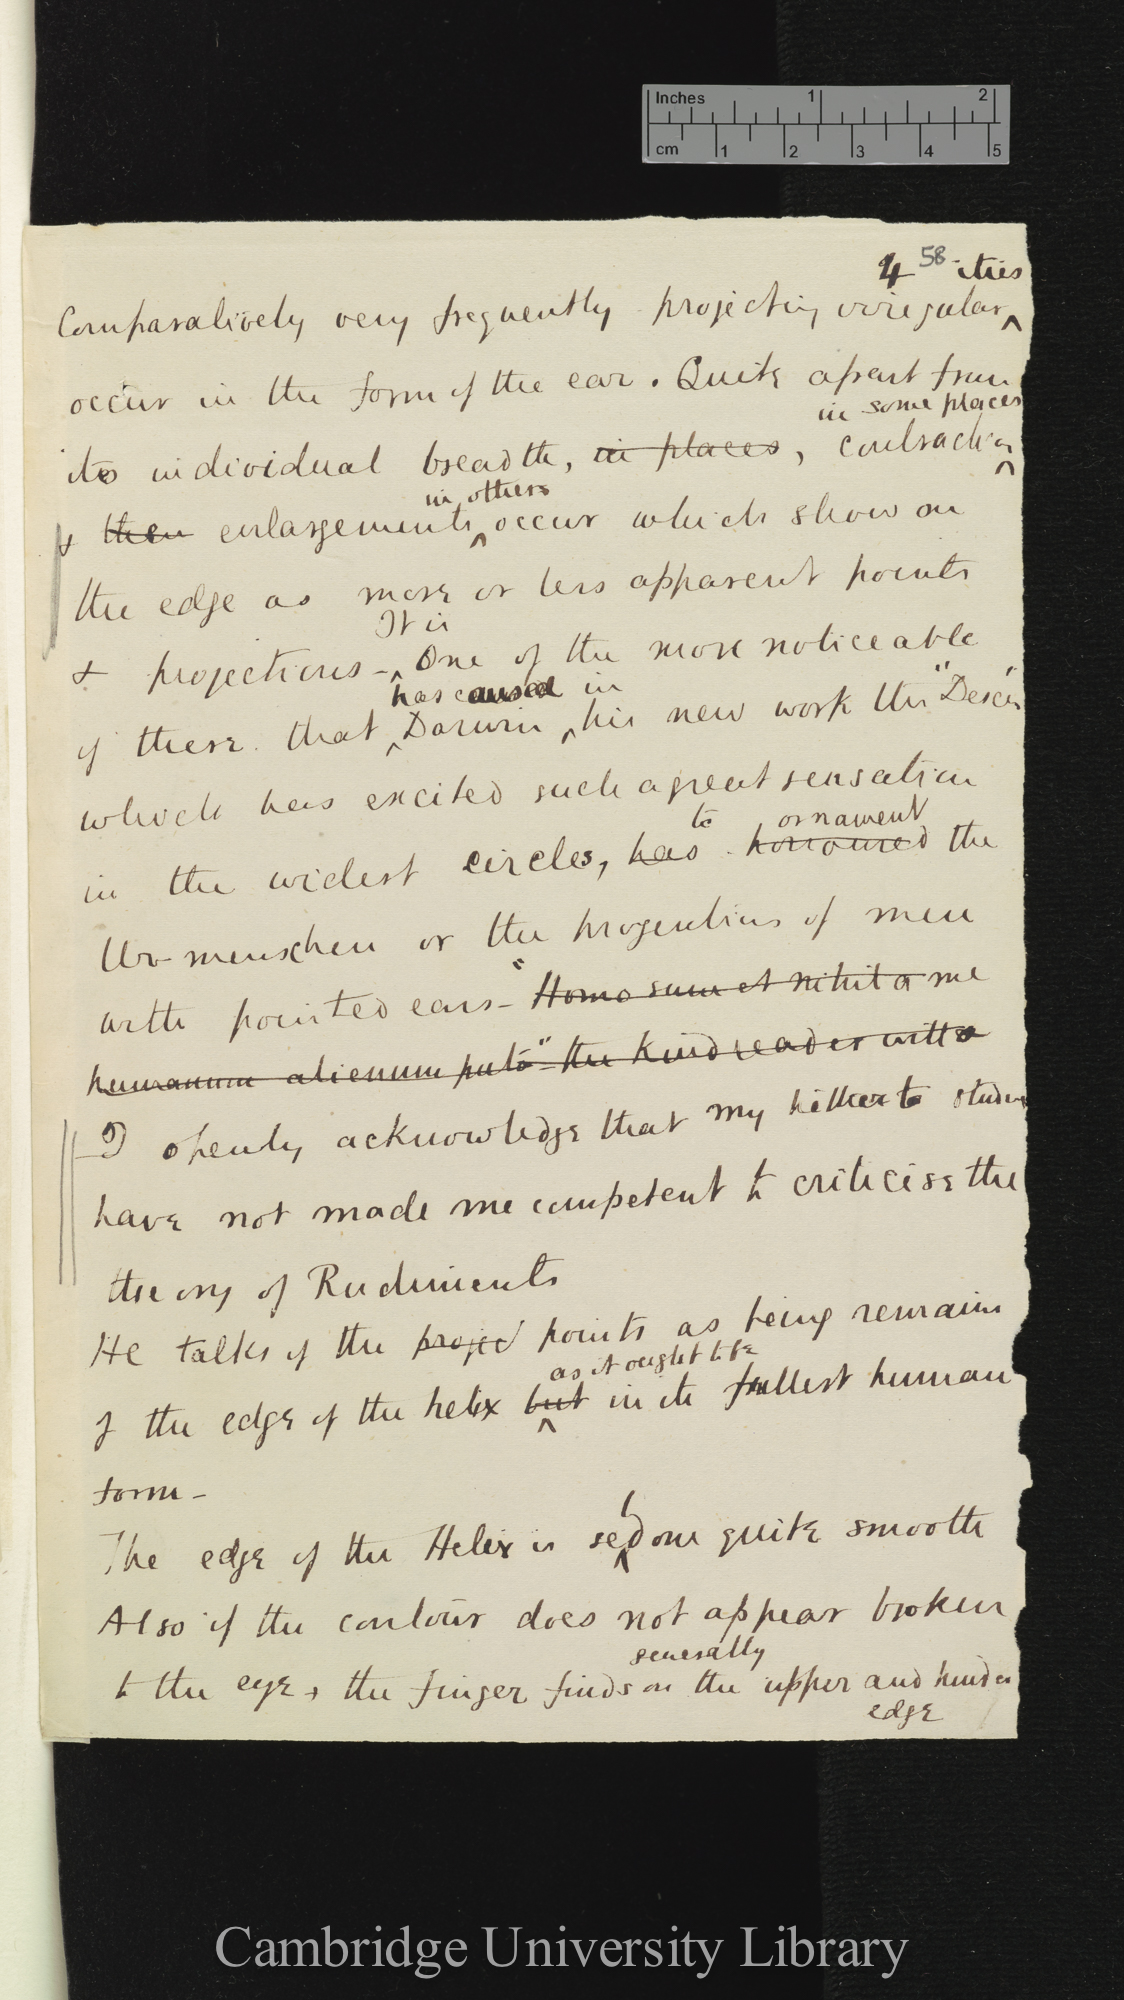 Inches 1 2
cm 1 2 3 4 5
4 58 -ities
Comparatively very frequently projecting irregular
occur in the form of the ear. Quite apart from
in some places
its individual breadth, in places, contraction
in others
& then enlargements occur which show on
the edge as more or less apparent points
It is
& projections - One of the more noticeable
has caused in
of these that Darwin his new work the "Descen
which has excited such a great sensation
to ornament
in the widest circles, has honoured the
Ur-menschen or the progenitors of men
with pointed ears - "Homo sum et nihil a me
humanum alienum puto" - the kind reader will
I openly acknowledge that my hitherto studies
have not made me competent to criticise the
theory of Rudiments
He talks of the projec points as being remains
as it ought to be
of the edge of the helix but in its fullest human
form -
l
The edge of the Helix is sedom quite smooth
Also if the contour does not appear broken
generally
to the eye, the finger finds on the upper and hinder
edge
Cambridge University Library